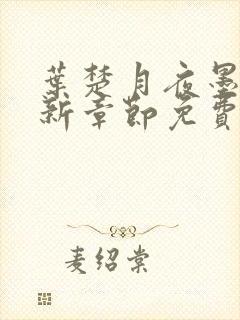 葉楚月夜墨
新章節免費
麦绍棠